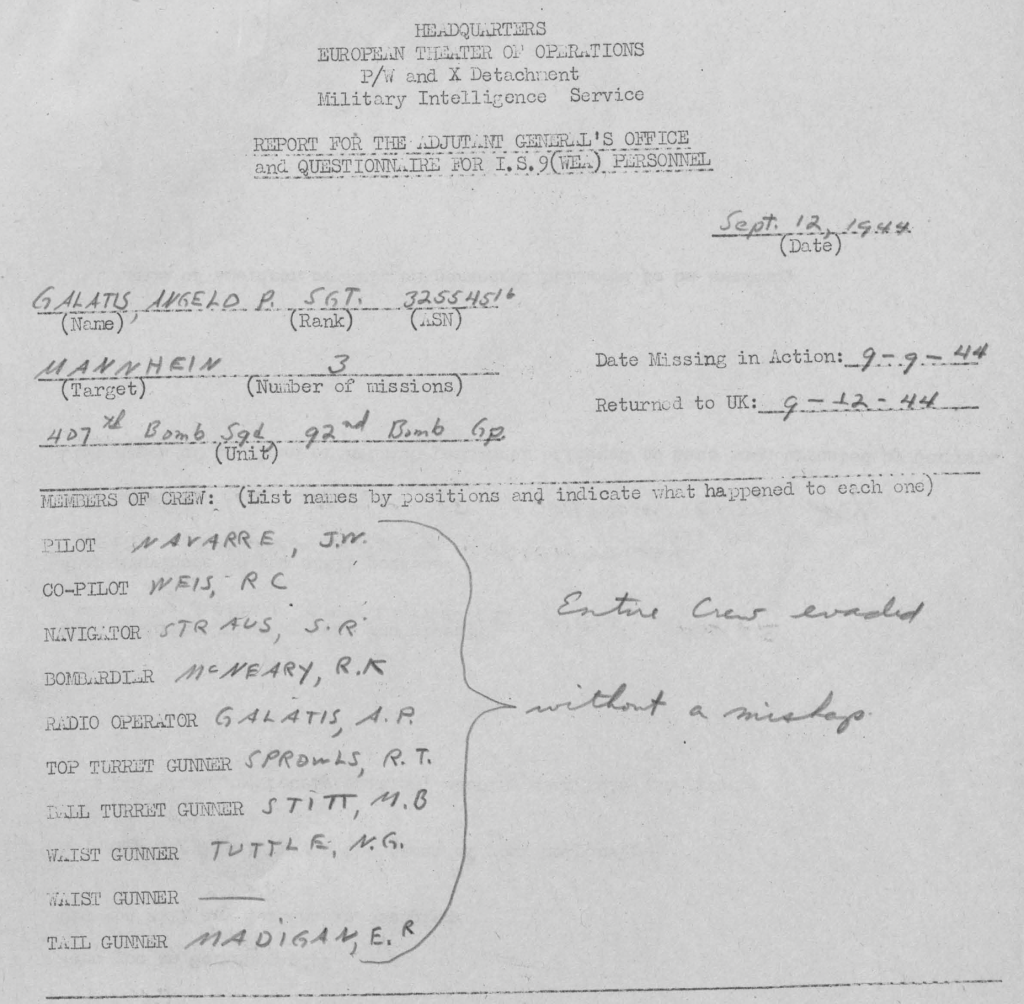 HEADQUARTERS
EUROPEAN THEATER OF OPERATIONS
P/W and X Detachment
Military Intelligence Service
REPORT FOR THE ADJUTANT GENERAL'S OFFICE
and QUESTIONNAIRE FOR I.S.9(WEA) PERSONNEL
Sept. 12, 1944
(Date)
GALATIS, ANGELO P. SGT. 32554516
(Name) (Rank) (ASN)
MANNHEIN 3
(Target) (Number of missions)
Date Missing in Action: 9-9-44
Returned to UK: 9-12-44
407th Bomb Sqd 92nd Bomb Gp.
(Unit)
MEMBERS OF CREW: (List names by positions and indicate what happened to each one)
PILOT NAVARRE, J.W.
CO-PILOT WEIS, R C
NAVIGATOR STRAUS, S.R.
BOMBARDIER McNEARY, R.K
RADIO OPERATOR GALATIS, A.P.
TOP TURRET GUNNER SPROWLS, R.T.
BALL TURRET GUNNER STITT, M.B
WAIST GUNNER TUTTLE, N.G.
WAIST GUNNER —
TAIL GUNNER MADIGAN, E.R
Entire Crew evaded
without a mishap.